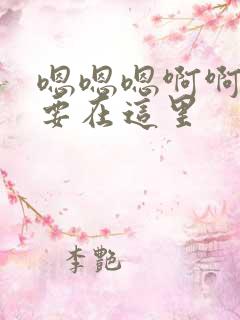 嗯嗯嗯啊啊
要在這里
李艷